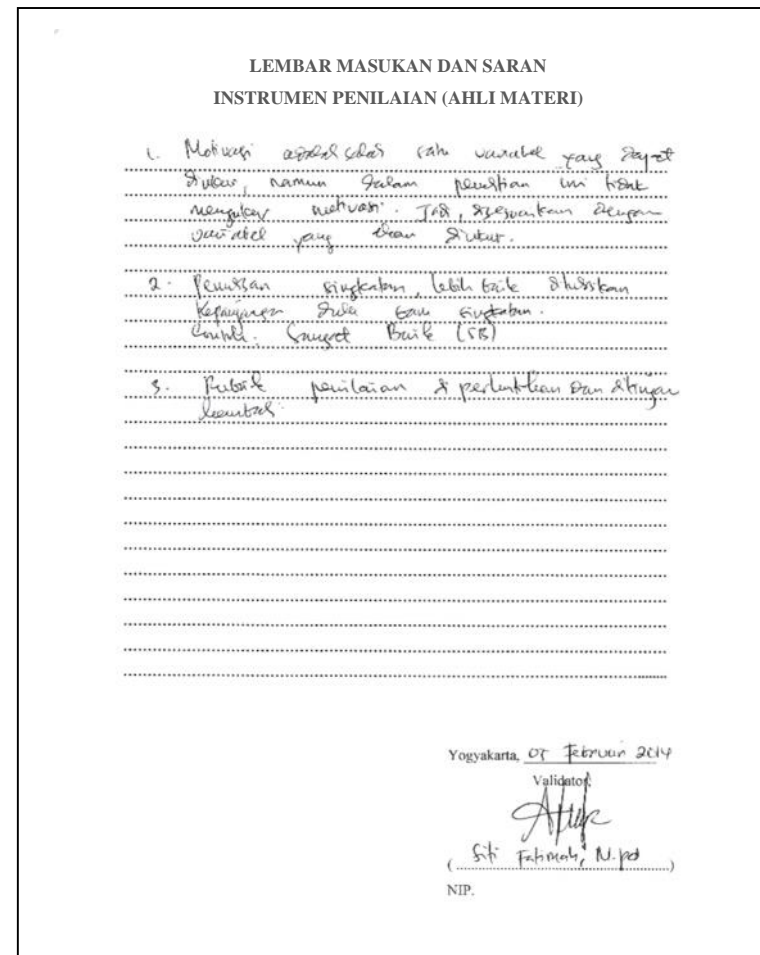 LEMBAR MASUKAN DAN SARAN
INSTRUMEN PENILAIAN (AHLI MATERI)
1. Motivasi adalah salah satu variabel yang dapat
diukur, namun dalam penelitian ini tidak
mengukur motivasi. Jadi, disesuaikan dengan
variabel yang akan diukur.
2. Penulisan singkatan, lebih baik dituliskan
Kepanjangan dulu baru singkatan.
Contoh: Sangat Baik (SB)
3. Rubrik penilaian diperhatikan dan ditinjau
kembali.
Yogyakarta, Februari 2014
Validator,
( Siti Fatimah, M.Pd )
NIP.